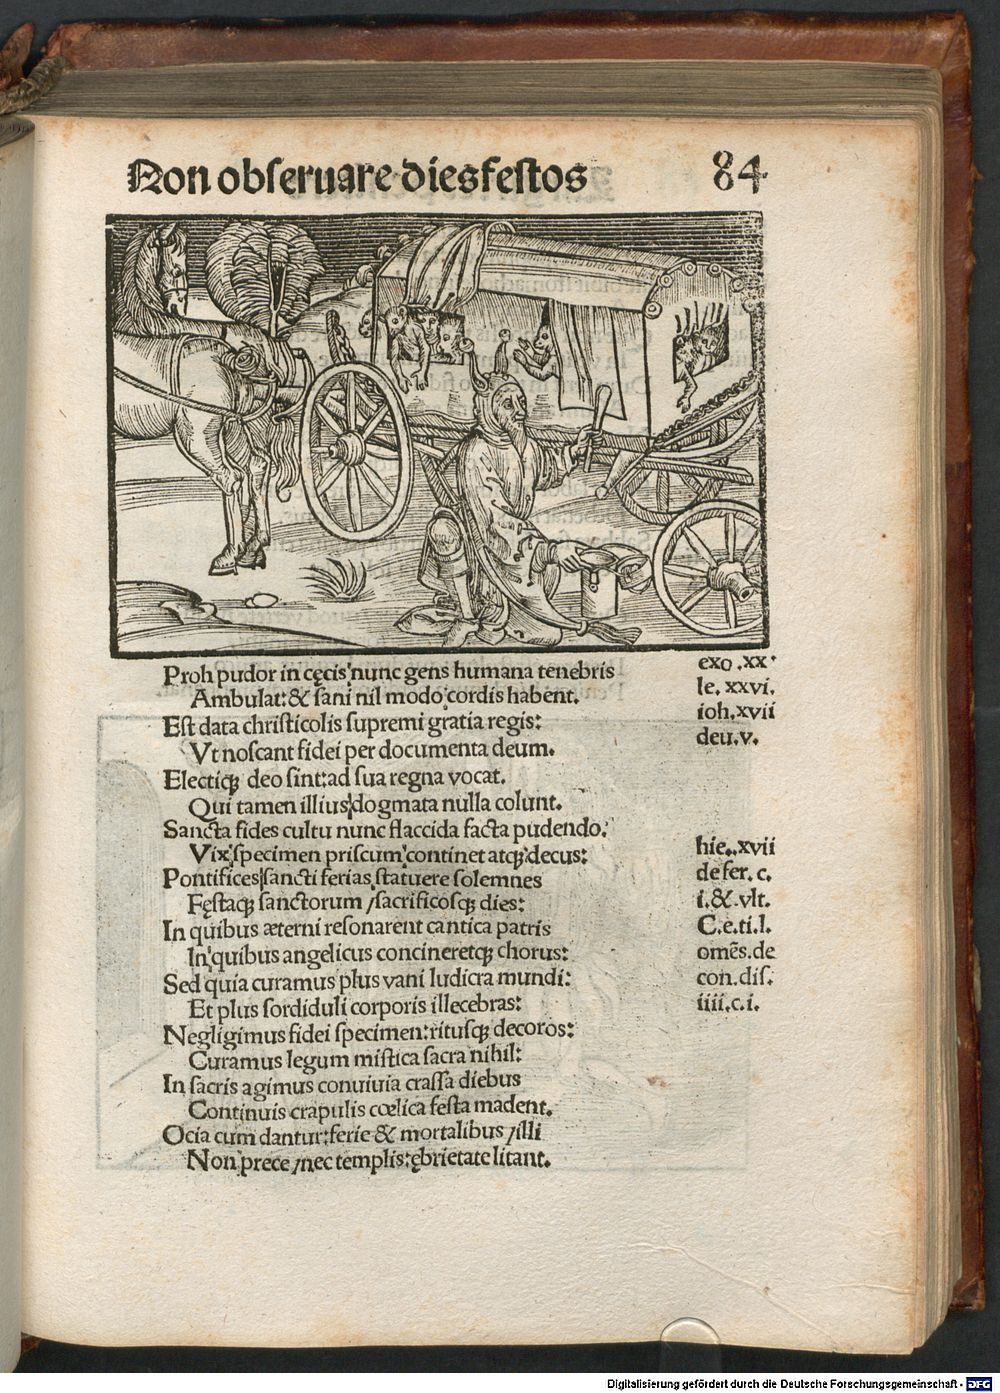 Non obseruare dies festos
84
Proh pudor in cęcis nunc gens humana tenebris
Ambulat: & sani nil modo cordis habent.
Est data christicolis supremi gratia regis:
Vt noscant fidei per documenta deum.
Electiqꝫ deo sint: ad sua regna vocat.
Qui tamen illius dogmata nulla colunt.
Sancta fides cultu nunc flaccida facta pudendo:
Vix specimen priscum continet atqꝫ decus:
Pontifices sancti ferias statuere solemnes
Fęstaqꝫ sanctorum / sacrificosqꝫ dies:
In quibus æterni resonarent cantica patris
In quibus angelicus concineretqꝫ chorus:
Sed quia curamus plus vani ludicra mundi:
Et plus sordiduli corporis illecebras:
Negligimus fidei specimen: ritusqꝫ decoros:
Curamus legum mistica sacra nihil:
In sacris agimus conuiuia crassa diebus
Continuis crapulis cœlica festa madent.
Ocia cum dantur: ferie & mortalibus / illi
Non prece / nec templis: ębrietate litant.
exo .xx.
le. xxvi.
ioh.xvii
deu.v.
hie..xvii
de fer. c.
i.& vlt.
C.e.ti.l.
omẽs.de
con.dis.
iiii.c.i.
Digitalisierung gefördert durch die Deutsche Forschungsgemeinschaft - DFG